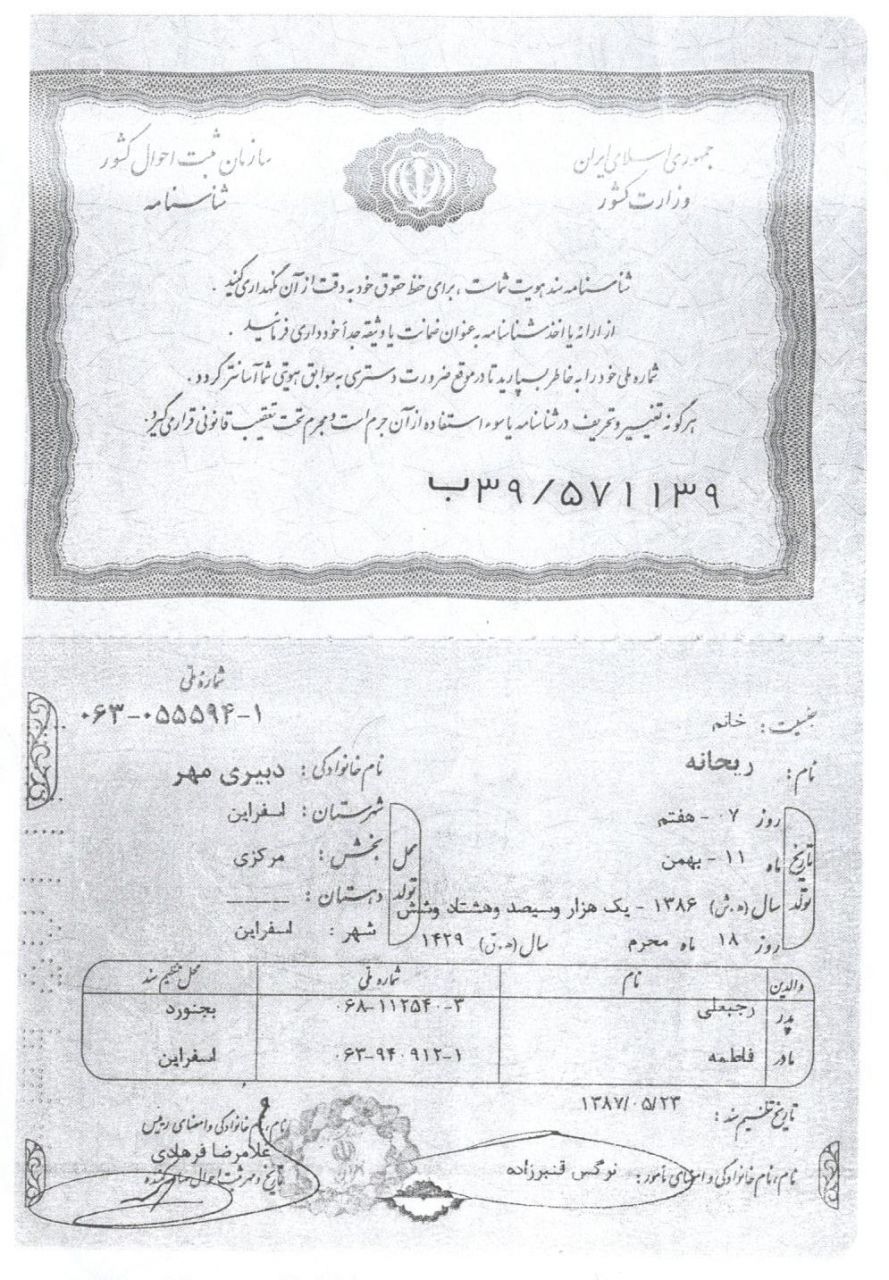 جمهوری اسلامی ایران
وزارت کشور
سازمان ثبت احوال کشور
شناسنامه
شناسنامه سند هویت شماست ، برای حفظ حقوق خود به دقت از آن نگهداری کنید .
از ارائه یا اخذ شناسنامه به عنوان ضمانت یا وثیقه جداً خودداری فرمائید .
شماره ملی خود را به خاطر بسپارید تا در موقع ضرورت دسترسی به سوابق هویتی شما آسانتر گردد .
هرگونه تغییر و تحریف در شناسنامه یا سوء استفاده از آن جرم است و مجرم تحت تعقیب قانونی قرار می گیرد.
ب۳۹/۵۷۱۱۳۹
شماره ملی
۰۶۳-۰۵۵۵۹۴-۱
جنسیت : خانم
نام : ریحانه
نام خانوادگی : دبیری مهر
تاریخ تولد
روز ۰۷ - هفتم
ماه ۱۱ - بهمن
سال (ه.ش) ۱۳۸۶ - یک هزار وسیصد وهشتاد وشش
روز ۱۸ ماه محرم سال (ه.ق) ۱۴۲۹
محل تولد
شهرستان : اسفراین
بخش : مرکزی
دهستان : ______
شهر : اسفراین
والدین نام شماره ملی محل تنظیم سند
پدر رجبعلی ۰۶۸-۱۱۲۵۴۰-۳ بجنورد
مادر فاطمه ۰۶۳-۹۴۰۹۱۲-۱ اسفراین
تاریخ تنظیم سند : ۱۳۸۷/۰۵/۲۳
نام،نام خانوادگی و امضای مأمور : نرگس قنبرزاده
نام، نام خانوادگی و امضای رییس
غلامرضا فرهادی
تاریخ و مهر ثبت احوال صادر کننده